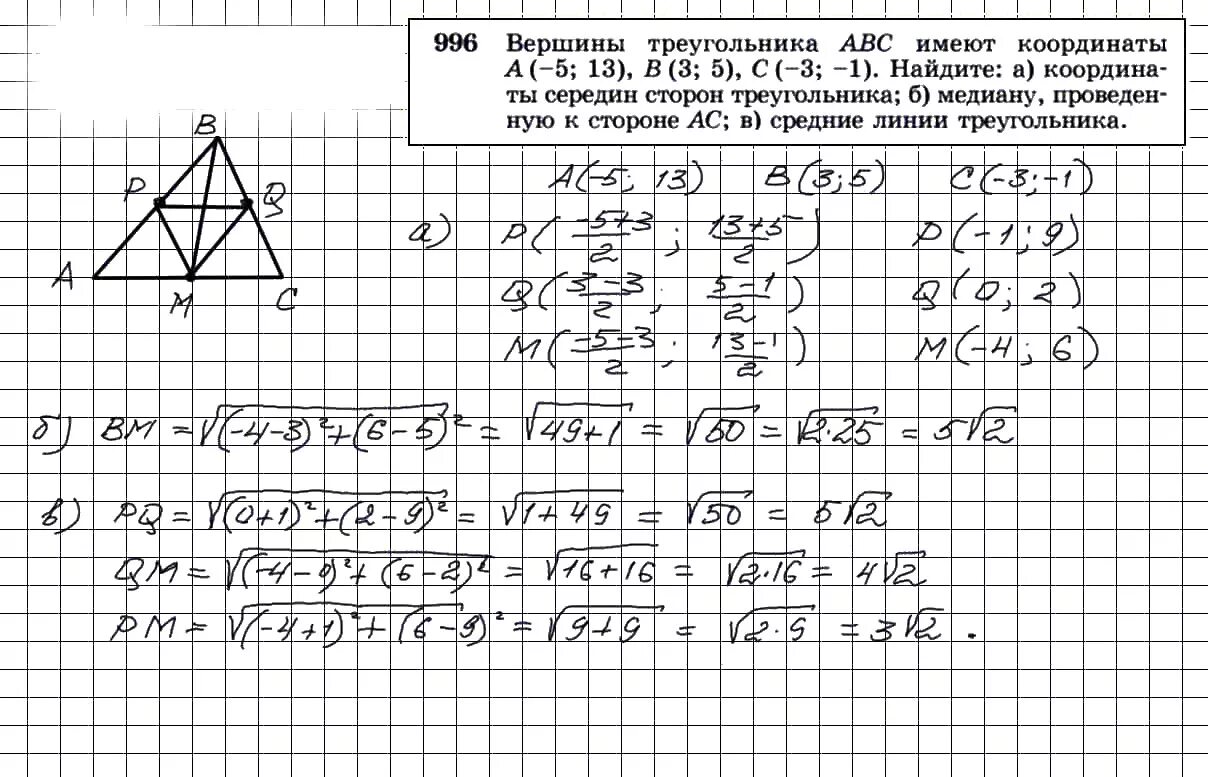 996 Вершины треугольника ABC имеют координаты
A (−5; 13), B (3; 5), C (−3; −1). Найдите: а) координа-
ты середин сторон треугольника; б) медиану, проведен-
ную к стороне AC; в) средние линии треугольника.
B
P Q
A M C
A(-5; 13) B(3; 5) C(-3; -1)
а) P((-5+3)/2 ; (13+5)/2) P(-1; 9)
Q((3-3)/2 ; (5-1)/2) Q(0; 2)
M((-5-3)/2 ; (13-1)/2) M(-4; 6)
б) BM = √((-4-3)²+(6-5)²) = √(49+1) = √50 = √(2·25) = 5√2
в) PQ = √((0+1)²+(2-9)²) = √(1+49) = √50 = 5√2
QM = √((-4-0)²+(6-2)²) = √(16+16) = √(2·16) = 4√2
PM = √((-4+1)²+(6-9)²) = √(9+9) = √(2·9) = 3√2 .